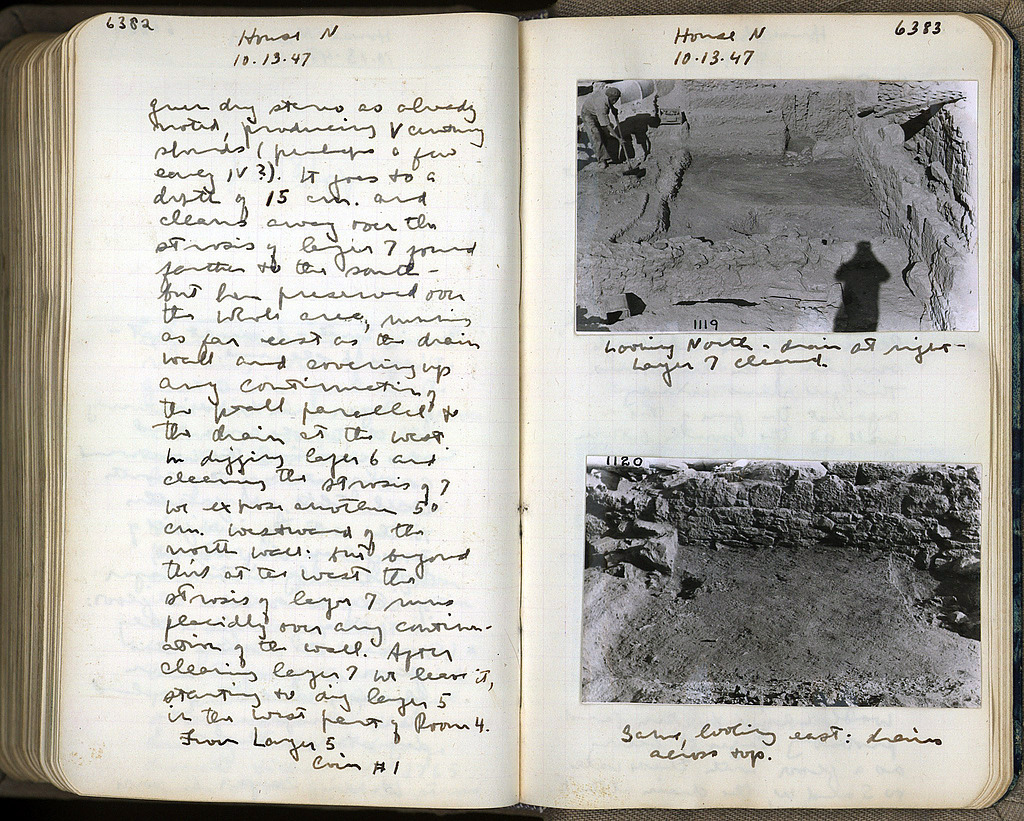 6382
House N
10.13.47
green dry stereo as already
noted, producing V century
sherds (perhaps a few
early IV?). It goes to a
depth of 15 cm. and
cleans away over the
strosis of layer 7 found
farther to the south –
but here preserved over
the whole area, running
as far east as the drain
wall and covering up
any continuation of
the wall parallel to
the drain at the west.
In digging layer 6 and
cleaning the strosis of 7
we expose another 50
cm. westward of the
north wall: but beyond
this at the west the
strosis of layer 7 runs
placidly over any continu-
ation of the wall. After
cleaning layer 7 we leave it,
starting to dig layer 5
in the west part of Room 4.
From Layer 5
Coin #1
6383
House N
10.13.47
1119
Looking North – drain at right –
Layer 7 cleaned.
1120
Same, looking east: drain
across top.